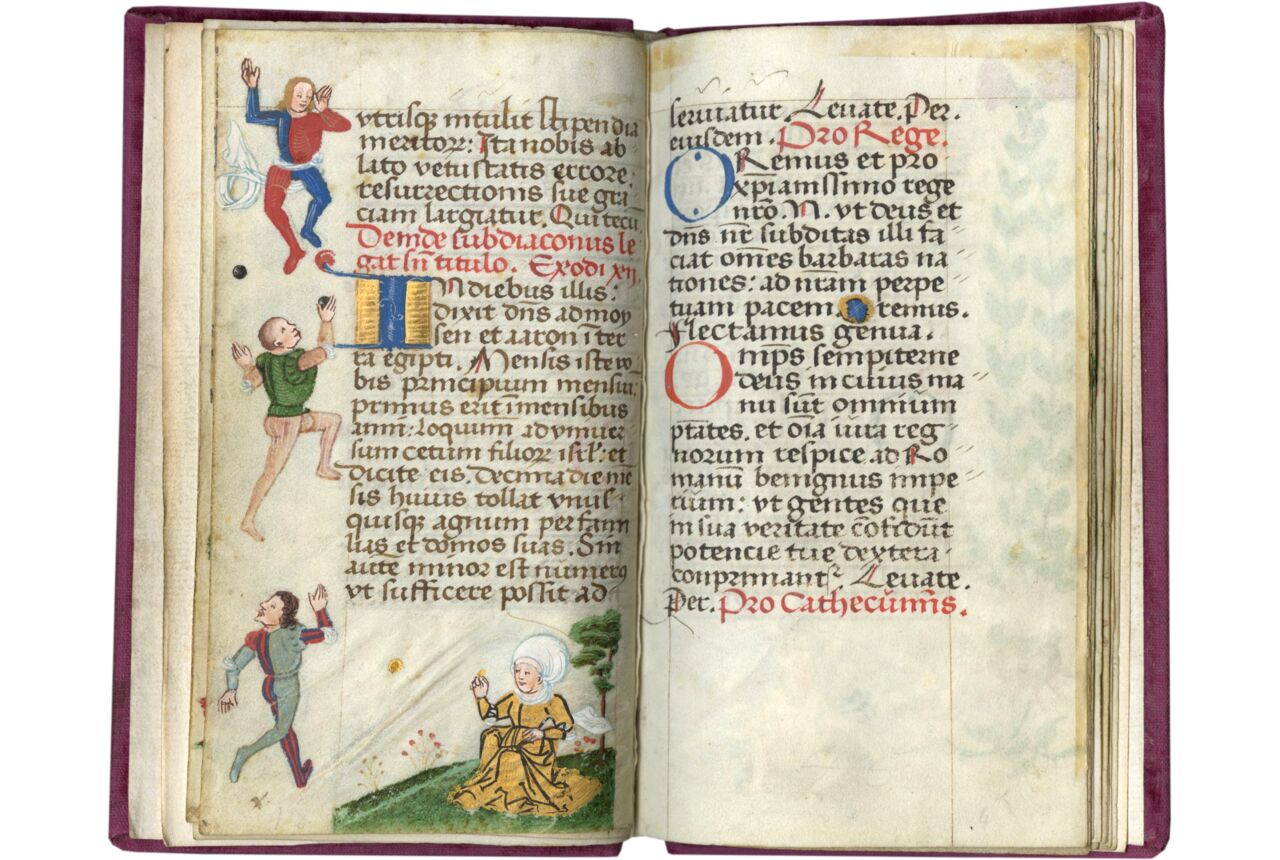 vtrisqȝ intulit stipendia
meritorꝝ: Ita nobis ab
lato vetustatis errore.
resurrectionis sue gra
ciam largiatur. Qui tecū
Deinde subdiaconus le
gat sn̄ titulo. Exodi xij
In diebus illis:
dixit dn̄s ad moy
sen et aaron ī ter
ra egipti. Mensis iste vo
bis principium mensiū:
primus erit ī mensibus
anni: loquim̄ ad vniuer
sum cetum filiorꝝ isrl̄: et
dicite eis. Decima die mē
sis huius tollat vnus
quisqȝ agnum per fami
lias et domos suas. Sin
aūte minor est numerꝰ
vt sufficere possit ad
seruiatur. Leuate. Per.
eiusdem. Pro Rege.
ORemus et pro
xp̄ianissimo rege
nr̄o. N. vt deus et
dn̄s nr̄ subditas illi fa
ciat om̄es barbaras na
tiones: ad nr̄am perpe
tuam pacem. Oremus.
Flectamus genua.
Omps̄ sempiterne
deus in cuius ma
nu sūt omniūm
ptātes. et oīa iura reg
norum respice ad Ro
manū benignus impe
rium: vt gentes que
in sua veritate cōfidūt
potencie tue dextera
conprimantᷣ. Leuate.
Per. Pro Cathecūmīs.